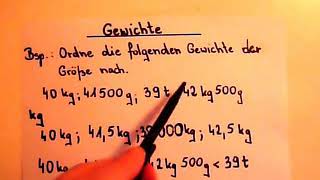 Gewichte
Bsp.: Ordne die folgenden Gewichte der
Größe nach.
40 kg; 41500g; 39 t 42 kg 500g
kg
40 kg; 41,5 kg; 39000kg; 42,5 kg
40 kg 42 kg 500g < 39t